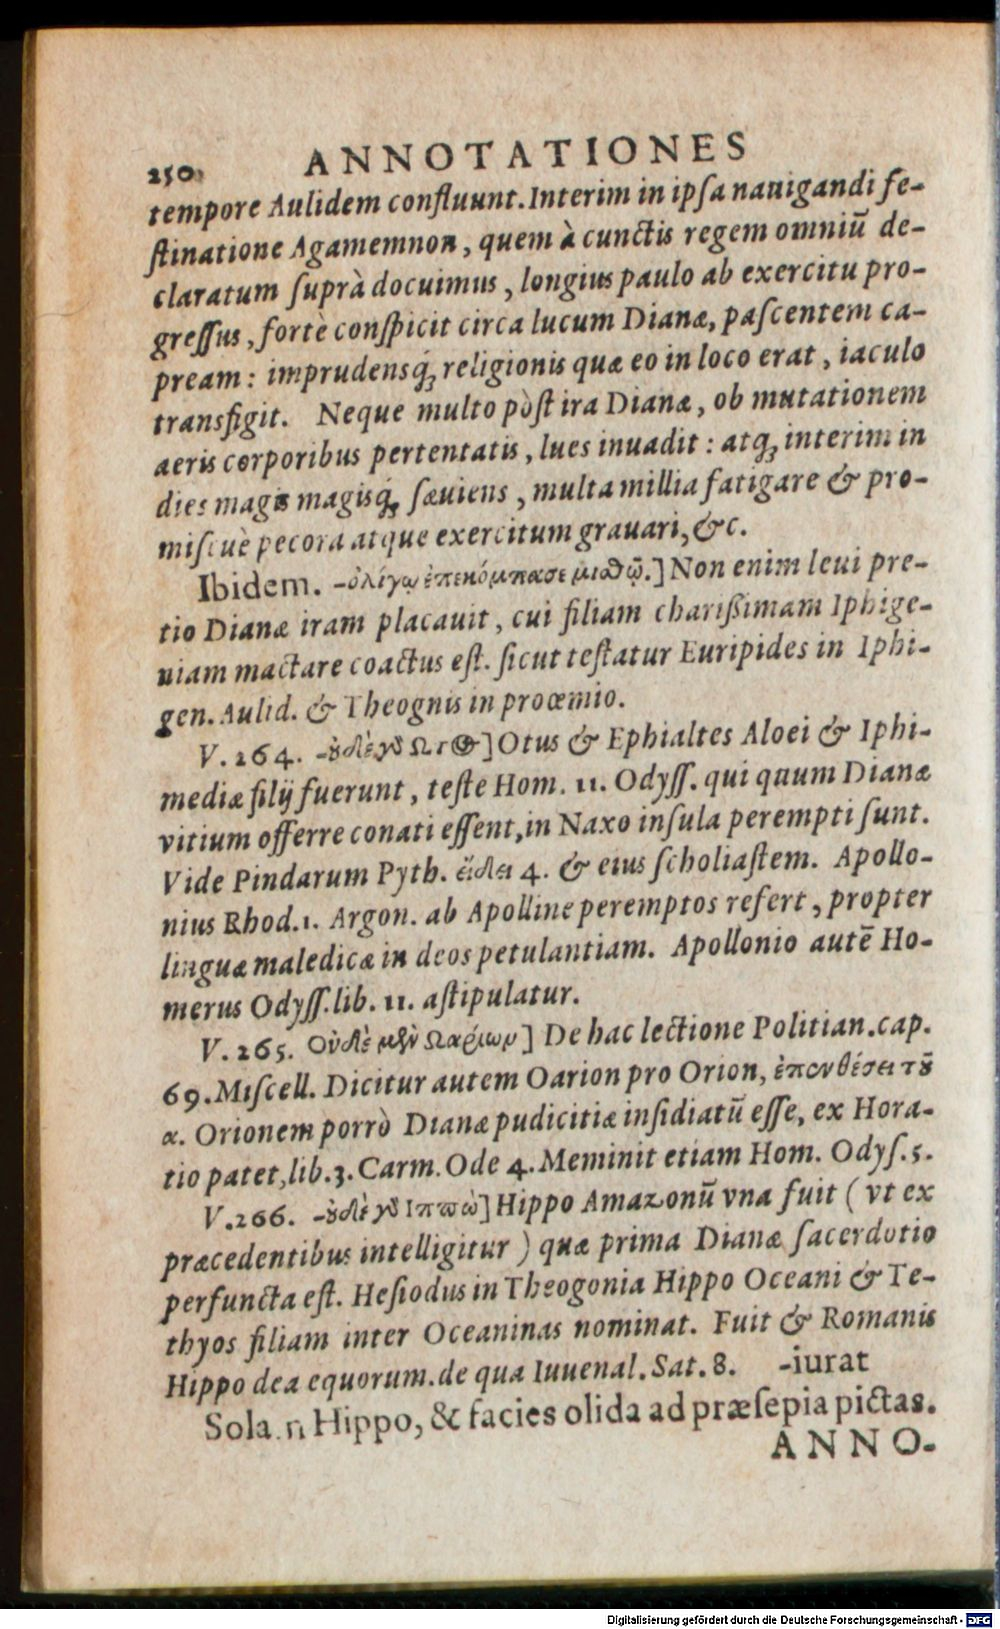 250 ANNOTATIONES
tempore Aulidem confluunt. Interim in ipſa nauigandi fe-
ſtinatione Agamemnon, quem à cunctis regem omniũ de-
claratum ſuprà docuimus, longius paulo ab exercitu pro-
greſſus, fortè conſpicit circa lucum Dianæ, paſcentem ca-
pream: imprudensq́; religionis quæ eo in loco erat, iaculo
transfigit. Neque multo pòſt ira Dianæ, ob mutationem
aeris corporibus pertentatis, lues inuadit: atq; interim in
dies magis magisq́; ſæuiens, multa millia fatigare & pro-
miſcuè pecora atque exercitum grauari, &c.
Ibidem. -ὀλίγῳ ἐπεκόμπασε μισθῷ.] Non enim leui pre-
tio Dianæ iram placauit, cui filiam charißimam Iphige-
niam mactare coactus eſt. ſicut teſtatur Euripides in Iphi-
gen. Aulid. & Theognis in proœmio.
V. 264. -ȣ̓δὲ γȣ̃ Ωτ⊕] Otus & Ephialtes Aloei & Iphi-
mediæ filij fuerunt, teſte Hom. 11. Odyſſ. qui quum Dianæ
vitium offerre conati eſſent, in Naxo inſula perempti ſunt.
Vide Pindarum Pyth. εἴδει 4. & eius ſcholiaſtem. Apollo-
nius Rhod. 1. Argon. ab Apolline peremptos refert, propter
linguæ maledicæ in deos petulantiam. Apollonio autẽ Ho-
merus Odyſſ. lib. 11. aſtipulatur.
V. 265. Οὐδὲ μὲν Ωαρίων] De hac lectione Politian. cap.
69. Miſcell. Dicitur autem Oarion pro Orion, ἐπενθέσει τȣ̃
α. Orionem porrò Dianæ pudicitiæ inſidiatũ eſſe, ex Hora-
tio patet, lib. 3. Carm. Ode 4. Meminit etiam Hom. Odyſ. 5.
V. 266. -ȣ̓δὲ γȣ̃ Ιππὼ] Hippo Amazonũ vna fuit (vt ex
præcedentibus intelligitur) quæ prima Dianæ ſacerdotio
perfuncta eſt. Heſiodus in Theogonia Hippo Oceani & Te-
thyos filiam inter Oceaninas nominat. Fuit & Romanis
Hippo dea equorum. de qua Iuuenal. Sat. 8. -iurat
Solam Hippo, & facies olida ad præſepia pictas.
ANNO-
Digitalisierung gefördert durch die Deutsche Forschungsgemeinschaft - DFG